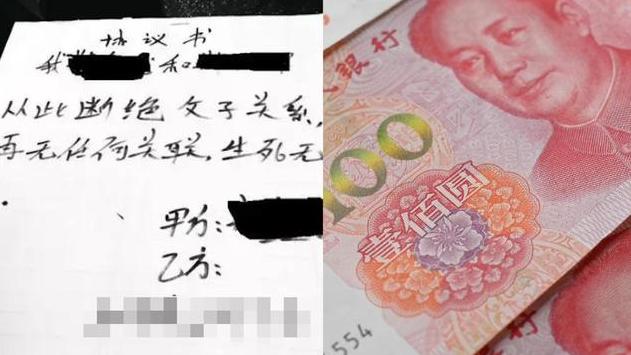 协议书
我 和
从此断绝父子关系,
再无任何关联,生死无
甲方:
乙方:
银行
100
壹佰圆
554